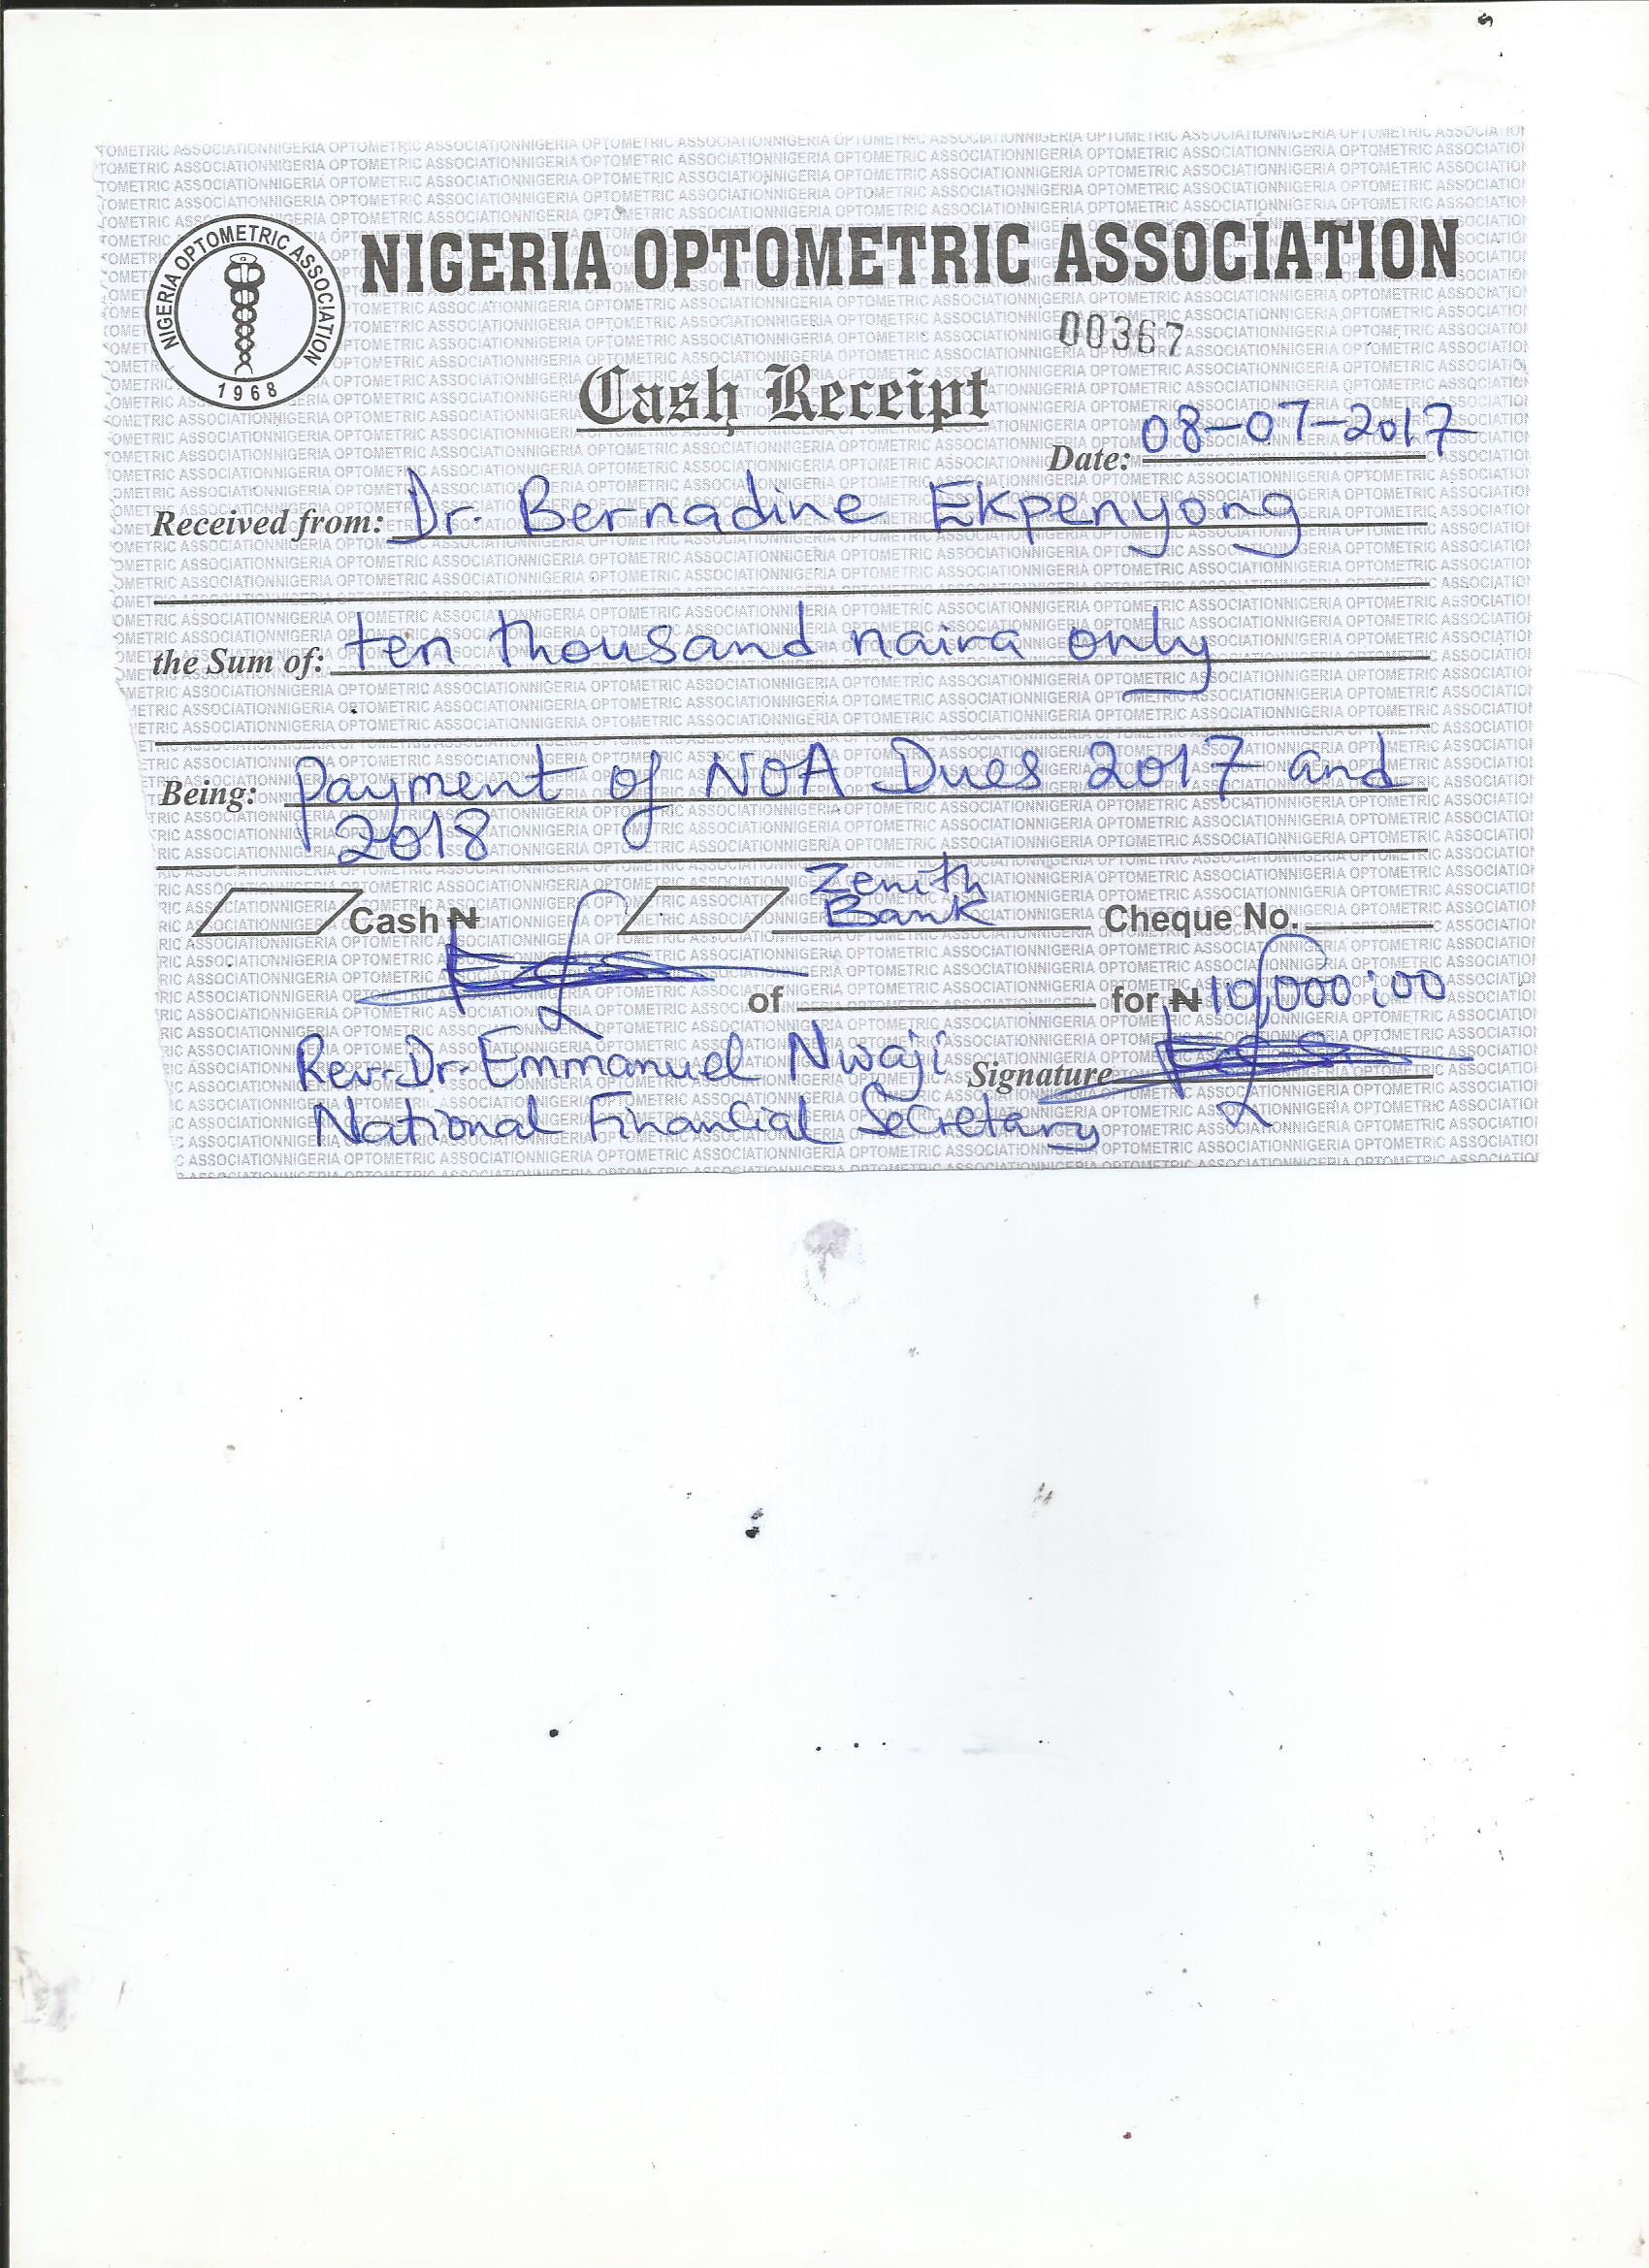 NIGERIA OPTOMETRIC ASSOCIATION
1968
NIGERIA OPTOMETRIC ASSOCIATION
00367
Cash Receipt
Date: 08-07-2017
Received from: Dr. Bernadine Ekpenyong
the Sum of: ten thousand naira only
Being: payment of NOA Dues 2017 and
2018
Cash ₦ Zenith Bank Cheque No.
of for ₦ 10,000:00
Rev. Dr. Emmanuel Nwaji Signature
National Financial Secretary